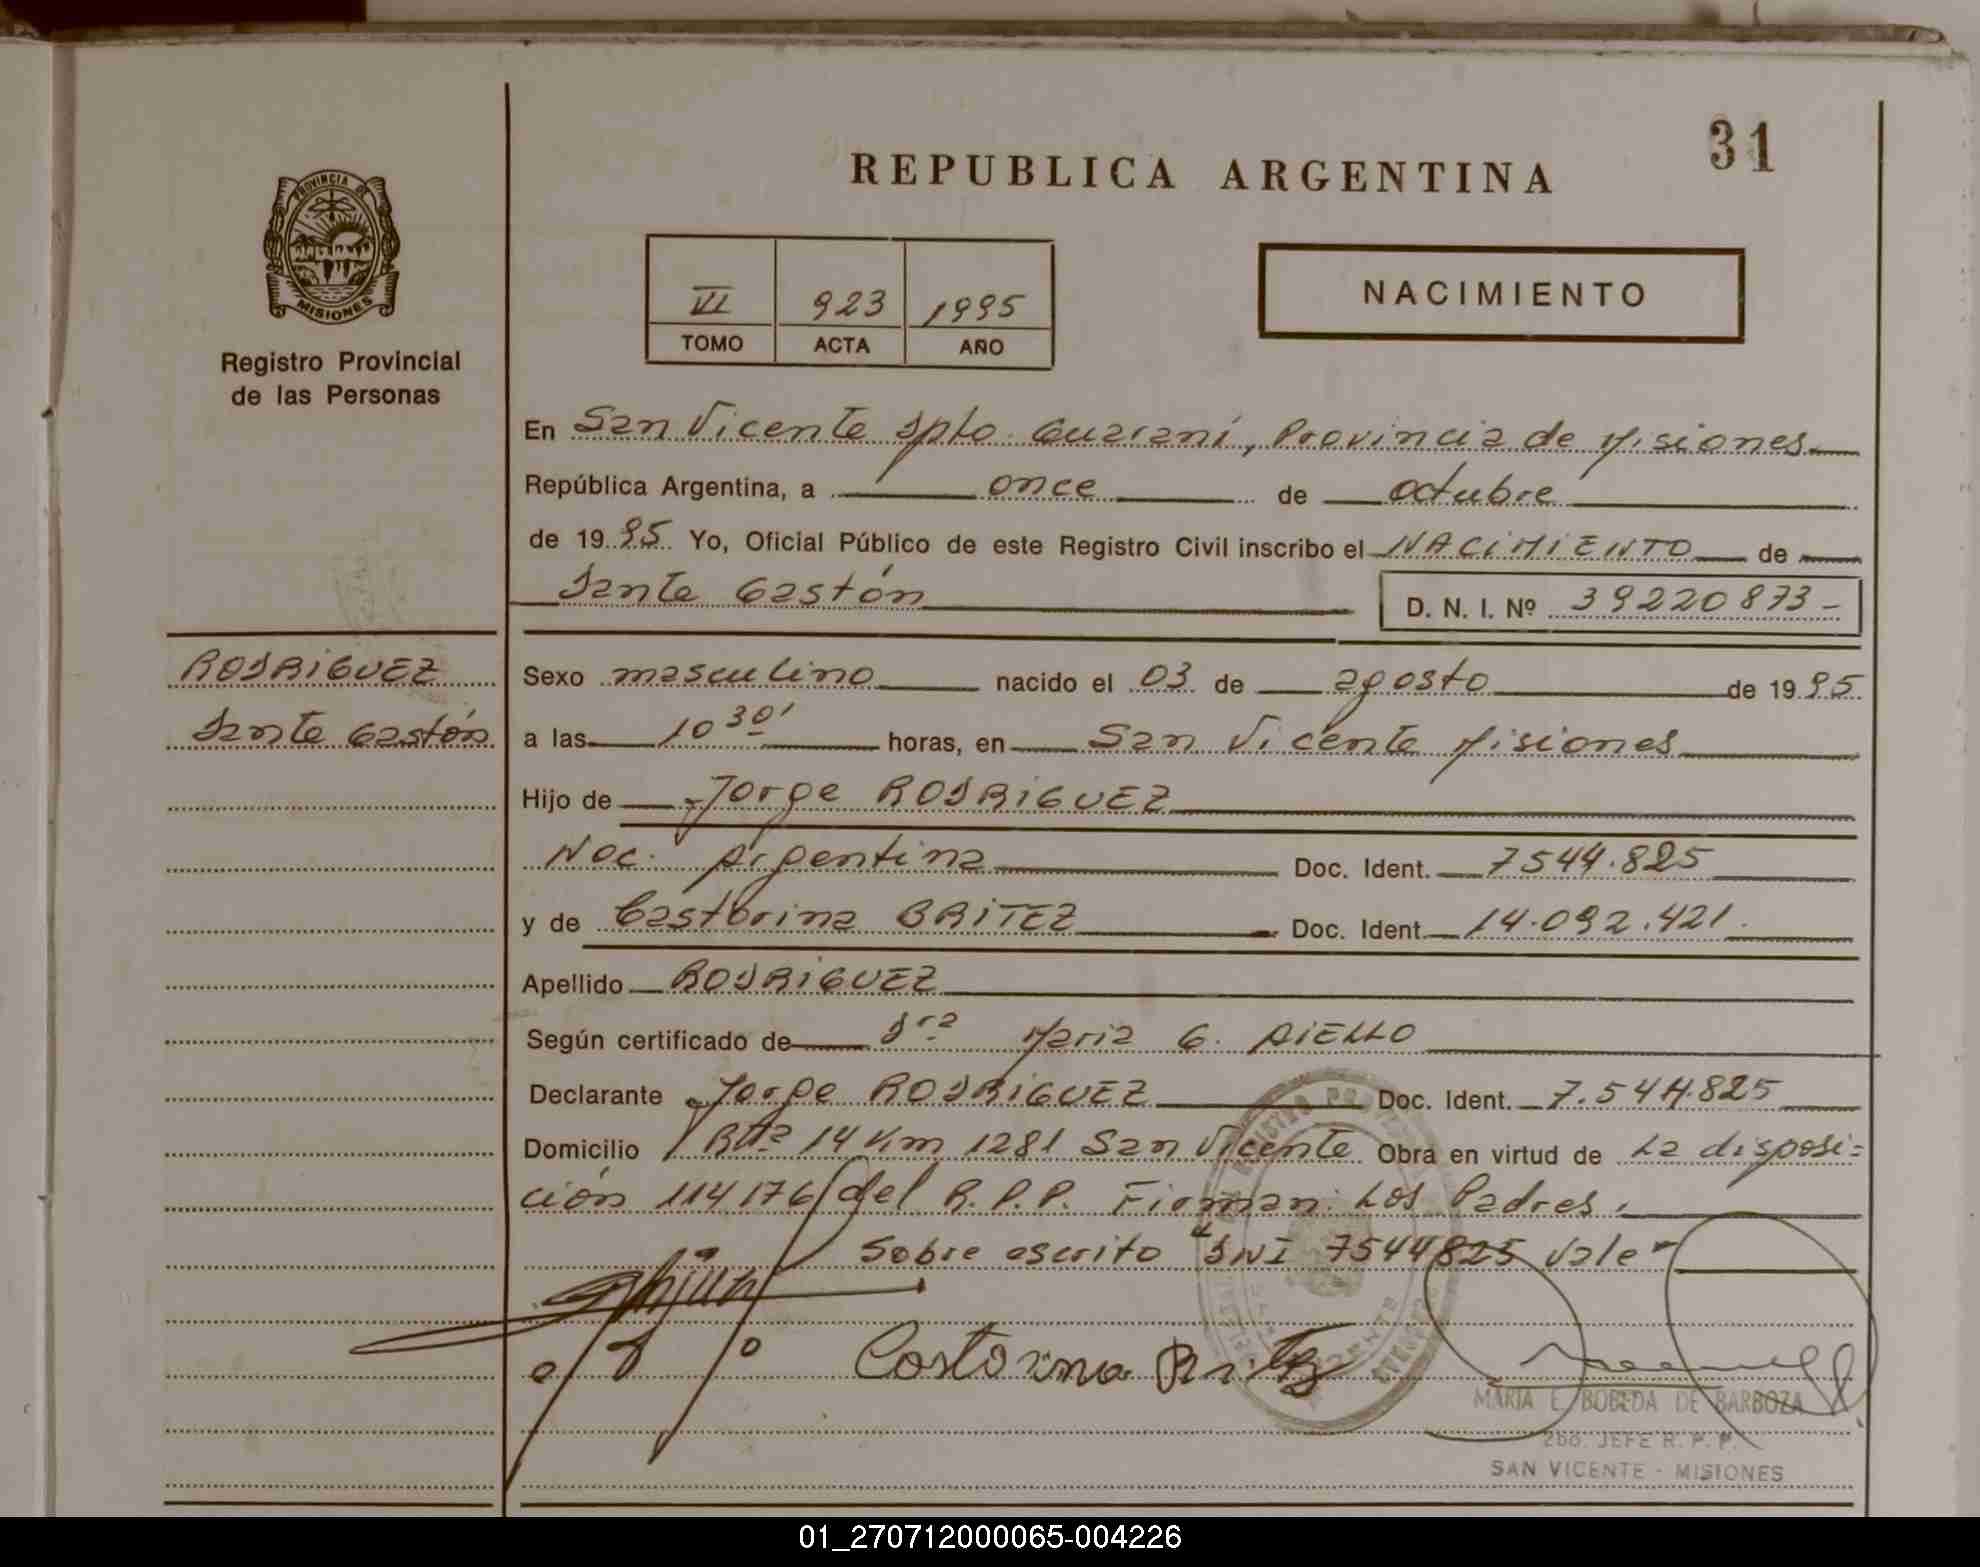 31
REPUBLICA ARGENTINA
PROVINCIA DE
MISIONES
VI 923 1995
TOMO ACTA AÑO
NACIMIENTO
Registro Provincial
de las Personas
En San Vicente Dpto. Guaraní, Provincia de Misiones
República Argentina, a once de octubre
de 1995 Yo, Oficial Público de este Registro Civil inscribo el NACIMIENTO de
Dante Gastón D. N. I. Nº 39220873-
RODRIGUEZ
Dante Gastón
Sexo masculino nacido el 03 de agosto de 1995
a las 10 30' horas, en San Vicente Misiones
Hijo de Jorge RODRIGUEZ
Nac. Argentina Doc. Ident. 7544.825
y de Castorina BRITEZ Doc. Ident. 14.092.421.
Apellido RODRIGUEZ
Según certificado de Dra Maria G. AIELLO
Declarante Jorge RODRIGUEZ Doc. Ident. 7.544.825
Domicilio Ruta 14 Km 1281 San Vicente Obra en virtud de La disposi=
ción 114176/ del R.P.P. Firman: Los Padres.
Sobre escrito "DNI 7544825 Vale"
Castorina Britez
MARIA E. BOBEDA DE BARBOZA
2do. JEFE R. P. P.
SAN VICENTE - MISIONES
01_270712000065-004226